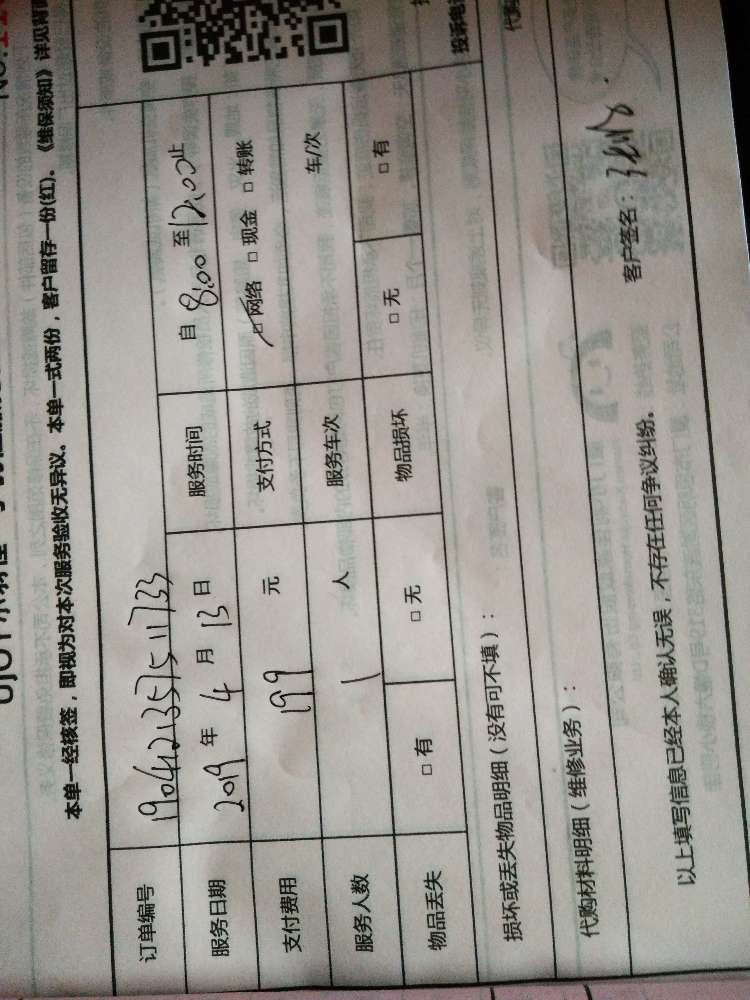 本单一经核签，即视为对本次服务验收无异议。本单一式两份，客户留存一份(红)。《维保须知》详见背面
订单编号 190412135751 1733
服务日期 2019 年 4 月 13 日 服务时间 自 8:00 至 12:00 止
支付费用 199 元 支付方式 □ 网络 □ 现金 □ 转账
服务人数 1 人 服务车次 车/次
物品丢失 □ 有 □ 无 物品损坏 □ 无 □ 有
损坏或丢失物品明细（没有可不填）：
代购材料明细（维修业务）：
以上填写信息已经本人确认无误，不存在任何争议纠纷。 客户签名：